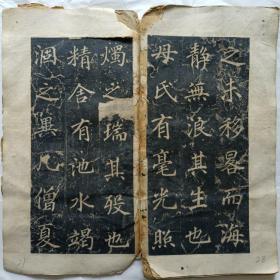 之未移晷而海
静無浪其生也
母氏有毫光照
28
燭之瑞其歿也
精舍有池水竭
涸之異凡僧夏
27